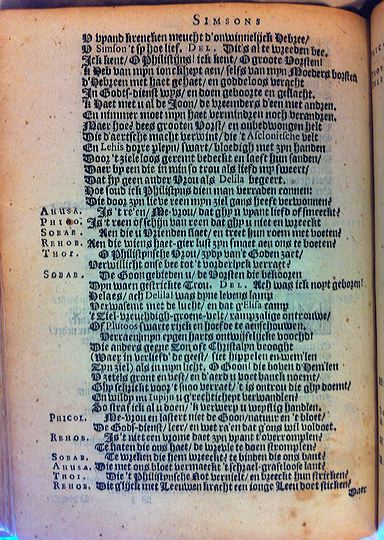 SIMSONS
U vyand krencken meucht d'onwinnelijck Hebree/
U Simson 't sy hoe lief. DEL. Dit's al te wreeden bee.
Ick kent/ O Philistijns! ick kent/ O groote Vorsten!
Ick heb van mijn ionckheyt aen/ selfs van mijn Moeders borsten
d'Hebreen met haet gehaet/ en goddeloos veracht
In Godts-dienst wijs/ en doen geboorte en geslacht.
Ick Haet met u al de Joon/ de vreemders d'een met andren.
En nimmer moet mijn haet vermindren noch verandren.
Maer hoe? dees grooten Vorst/ en onbedwongen helt
Die d'aertsche macht verwint/ die 't Ascalonische velt
En Lehis dorre pleyn/ swart/ bloedigh met zijn handen
Door 't zieleloos geremt bedeckt en laest sijn sanden/
Daer by een die in min so trou als liefd' my sweert/
Dat hy geen ander Vrou als Delila begeert.
Hoe soud ick Philistijns dien man verraden connen
Die door zijn lieve reen mijn ziel gans heeft verwonnen?
AHUSA. Is 't re'en/ Me-vrou/ dat ghy u vyant liefd of smeeckt?
PHICO. Is 't reen of schijn van reen dat ghy u niet en wreeckt
SOBAB. Aen die u Vrienden slaet/ en treet hun roem met voeten?
REHOB. Aen die wiens haet-gier lust zijn smaet aen ons te boeten?
THOI. O Philistijnsche Vrou/ zydy van 't Goden zaet/
Verwillicht onse bee tot 't vorderlijck verraet?
SOBAB. De Goon gebieden u/ de Vorsten die bekooren
Dijn waen gestrickte Trou. DEL. Ach was ick noyt geboren!
Helaes/ ach Delila! was dyne levens lamp
Verwasemt met de lucht/ en dat
't Ziel-vreuchdigh-groene-velt/ rampzalige ontrouwe/
Of Plutoos swarte rijck en hoefde te aenschouwen.
Verraen mijn eygen harts ontwijfelijcke voochd!
Die anders geene Son oft Ghestalen vooght
(Waer in verliefd' de geest/ siet hippelen en wem'len
Zijn ziel) als in mijn licht. O Goon! die boven d'Hem'len
U zetels gront en vest/ en d'aerd u voet banck noemt/
Ghy schrickt voor 't snoo verraet/ t is ontrou die ghy doemt/
En wild my Iupijn u g'rechticheyt verwandlen?
So straf ick al u doen/ 'k verwerp u wystigh handlen.
PHICOL. Me-vrou en lastert niet de Goon/ natuur en 't bloet/
De Godts-dienst/ leer/ en wet ra'en dat g'ons wil voldoet.
REHOB. Is 't niet een vrome daet zijn vyant t'overromplen/
Te haten die ons haet/ de wreve te doen strompelen?
SOBAB. Te wreken die hem wreeckt? te binden die ons bant?
AHUSA. Die met ons bloet vermaeckt 't schrael-grasloose lant?
THOI. Die 't Philistijnsche Rot vernielt/ en breeckt hun stricken?
REHOB. Die ghlijck met Leeuwen kracht een ionge Leeu doet sticken?
Daer